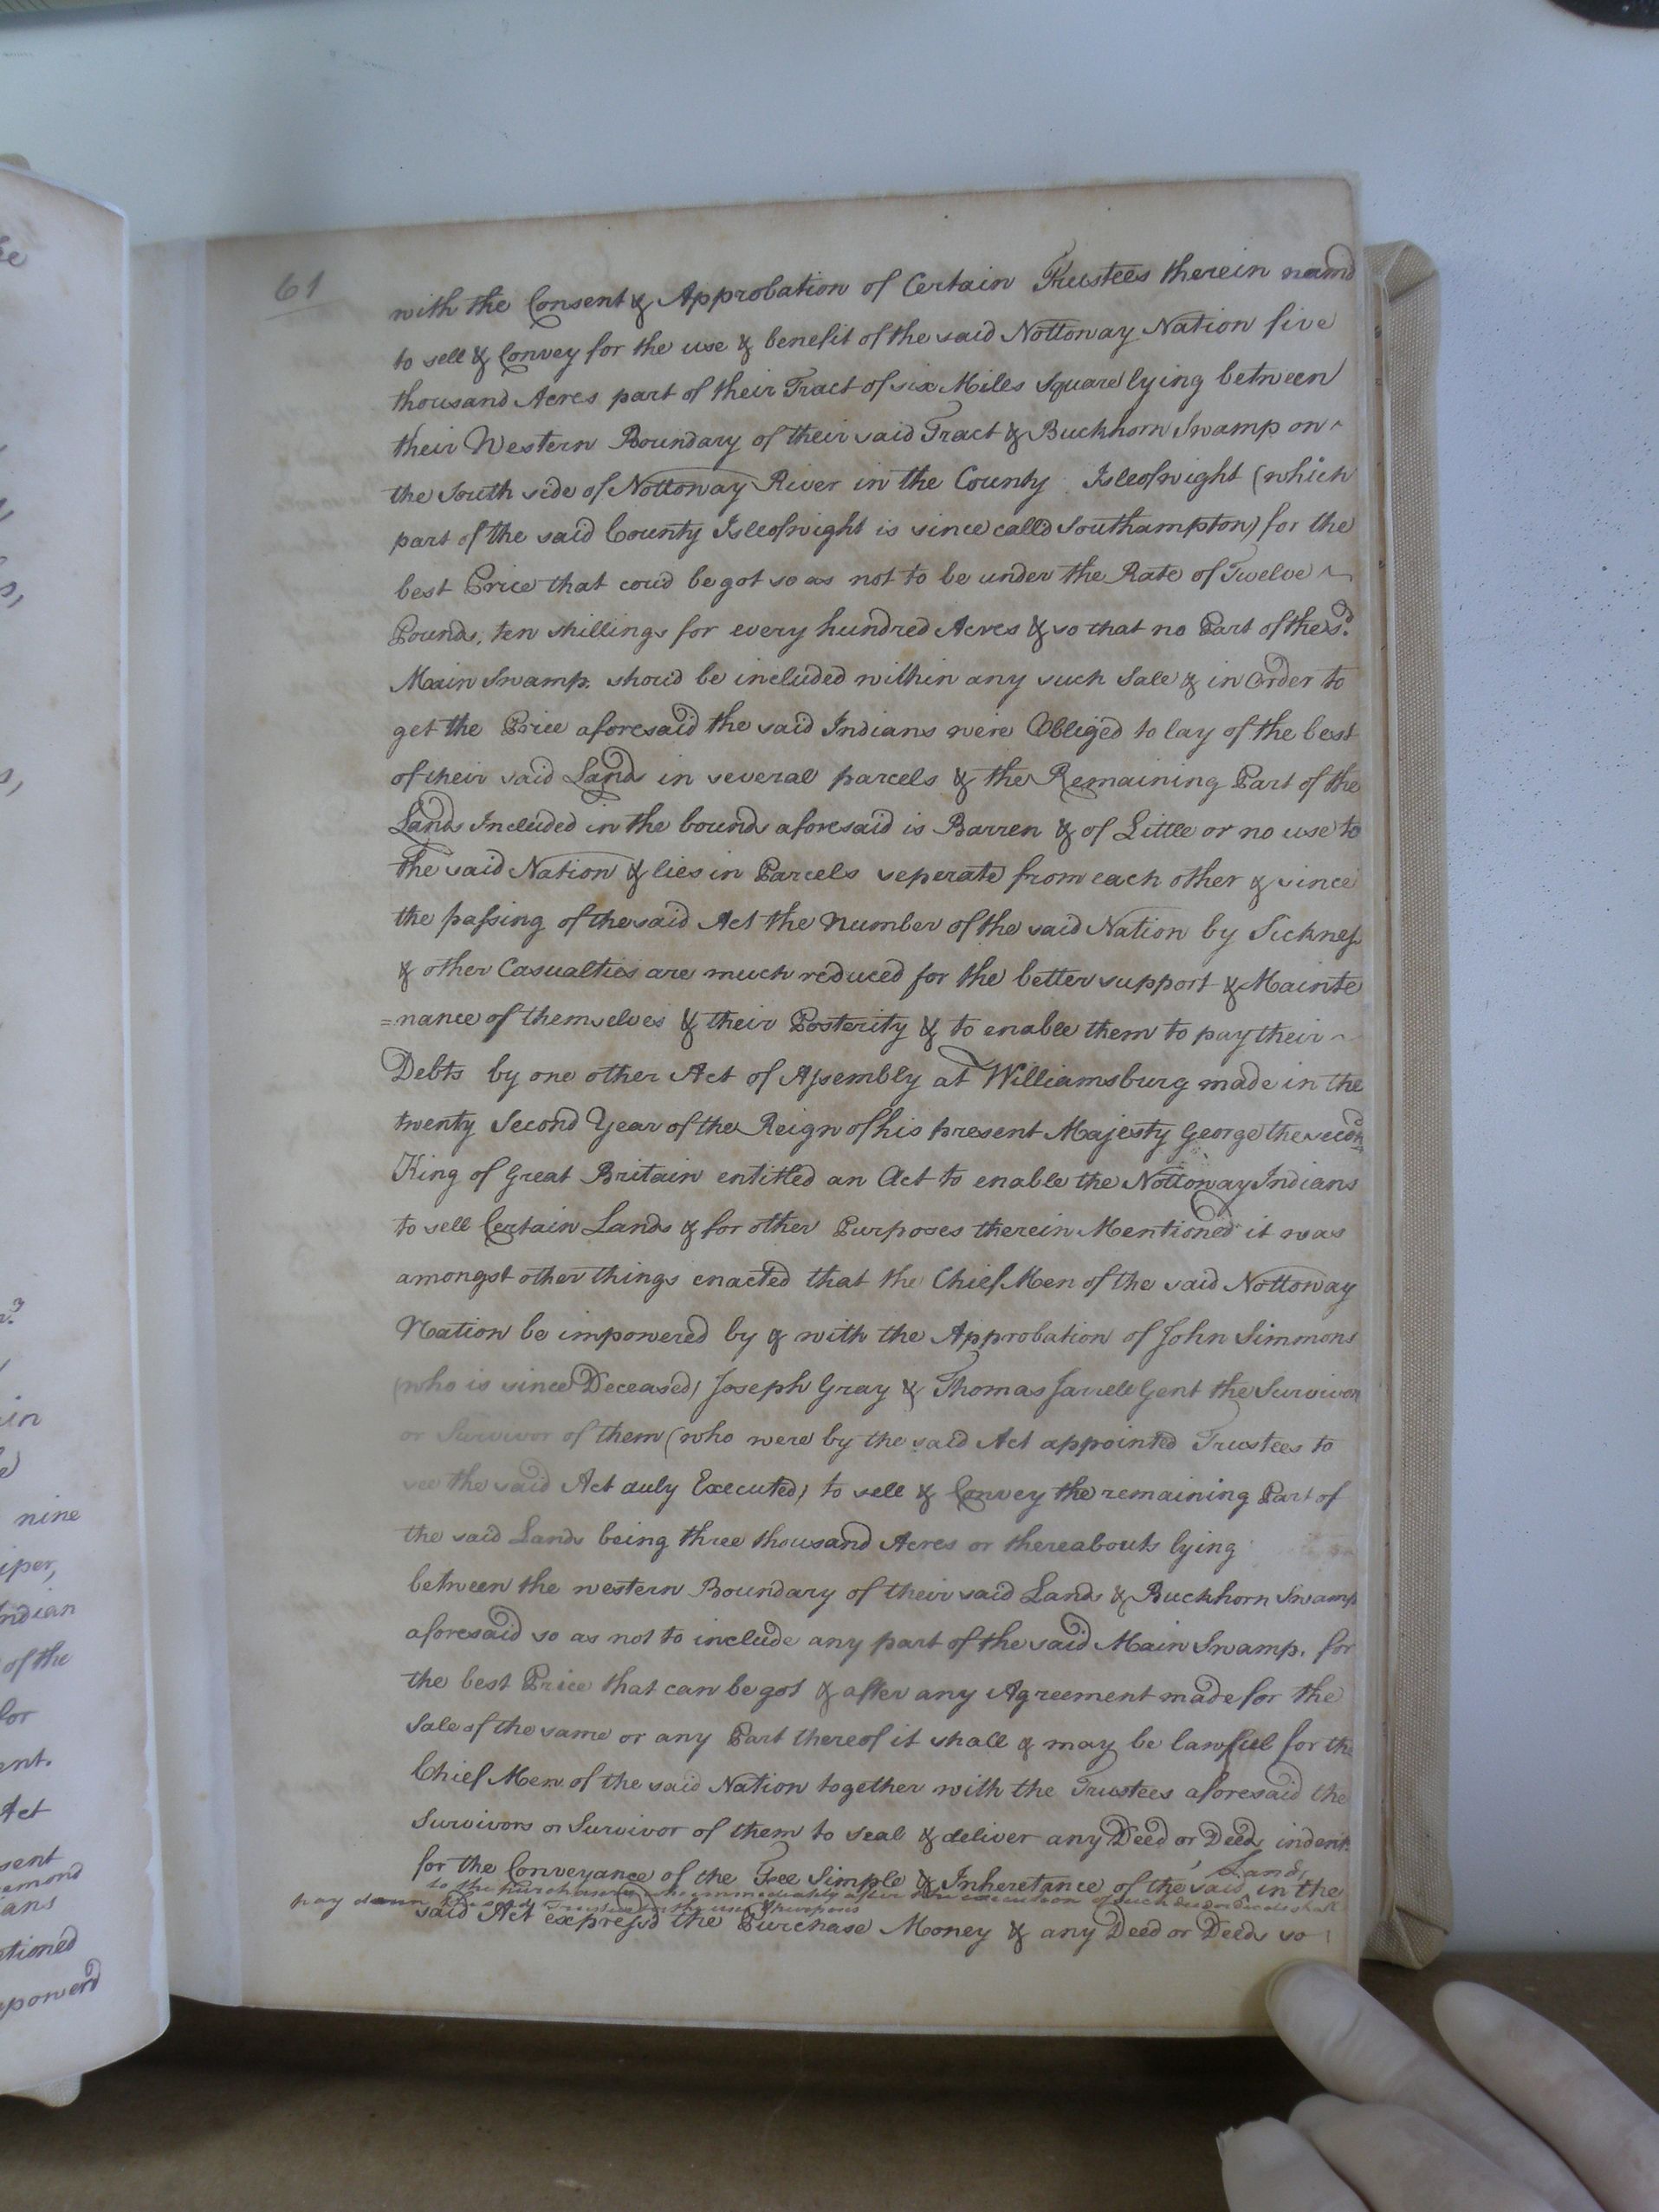 61
with the Consent & Approbation of Certain Trustees therein namd
to sell & Convey for the use & benefit of the said Nottoway Nation five
thousand Acres part of their Tract of six Miles Square lying between
their Western Boundary of their said Tract & Buckhorn Swamp on
the South side of Nottoway River in the County Isleofwight (which
part of the said County Isleofwight is since calld Southampton) for the
best Price that coud be got so as not to be under the Rate of Twelve
Pounds, ten shillings for every hundred Acres & so that no Part of the sd.
Main Swamp. shoud be included within any such Sale & in Order to
get the Price aforesaid the said Indians were Obliged to lay of the best
of their said Lands in several parcels & the Remaining Part of the
Lands Included in the bounds aforesaid is Barren & of Little or no use to
the said Nation & lies in Parcels seperate from each other & since
the passing of the said Act the Number of the said Nation by Sickness
& other Casualties are much reduced for the better support & Mainte
=nance of themselves & their Posterity & to enable them to pay their
Debts by one other Act of Assembly at Williamsburg made in the
twenty Second Year of the Reign of his present Majesty George the second
King of Great Britain entitled an Act to enable the Nottoway Indians
to sell Certain Lands & for other Purposes therein Mentioned it was
amongst other things enacted that the Chief Men of the said Nottoway
Nation be impowered by & with the Approbation of John Simmons
(who is since Deceased) Joseph Gray & Thomas Jarrell Gent the Survivors
or Survivor of them (who were by the said Act appointed Trustees to
see the said Act duly Executed) to sell & Convey the remaining Part of
the said Lands being three thousand Acres or thereabouts lying
between the western Boundary of their said Lands & Buckhorn Swamp
aforesaid so as not to include any part of the said Main Swamp. for
the best Price that can be got & after any Agreement made for the
Sale of the same or any Part thereof it shall & may be lawful for the
Chief Men of the said Nation together with the Trustees aforesaid the
Survivors or Survivor of them to seal & deliver any Deed or Deeds indent.
for the Conveyance of the Fee Simple & Inheretance of the said Lands in the
to the Purchasers who immediately after the execution of such deed or deeds shall
pay down to the said Trustees for the uses & purposes
said Act express'd the Purchase Money & any Deed or Deeds so
nine
iper,
ndian
of the
for
ent.
Act
sent
emond
ans
tioned
powerd